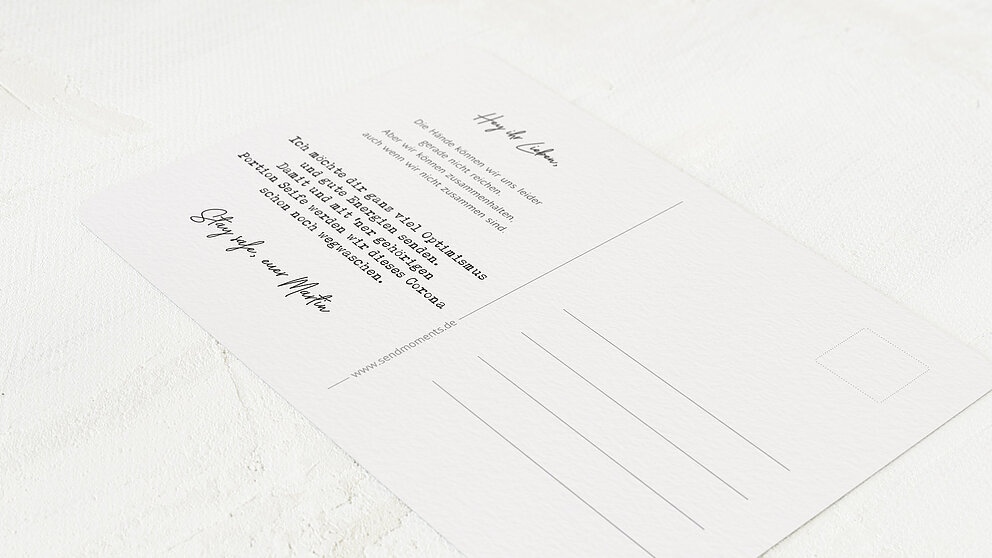 Hey ihr Lieben,
Die Hände können wir uns leider
gerade nicht reichen.
Aber wir können zusammenhalten,
auch wenn wir nicht zusammen sind.
Ich möchte dir ganz viel Optimismus
und gute Energien senden.
Damit und mit 'ner gehörigen
Portion Seife werden wir dieses Corona
schon noch wegwaschen.
Stay safe, euer Martin
www.sendmoments.de